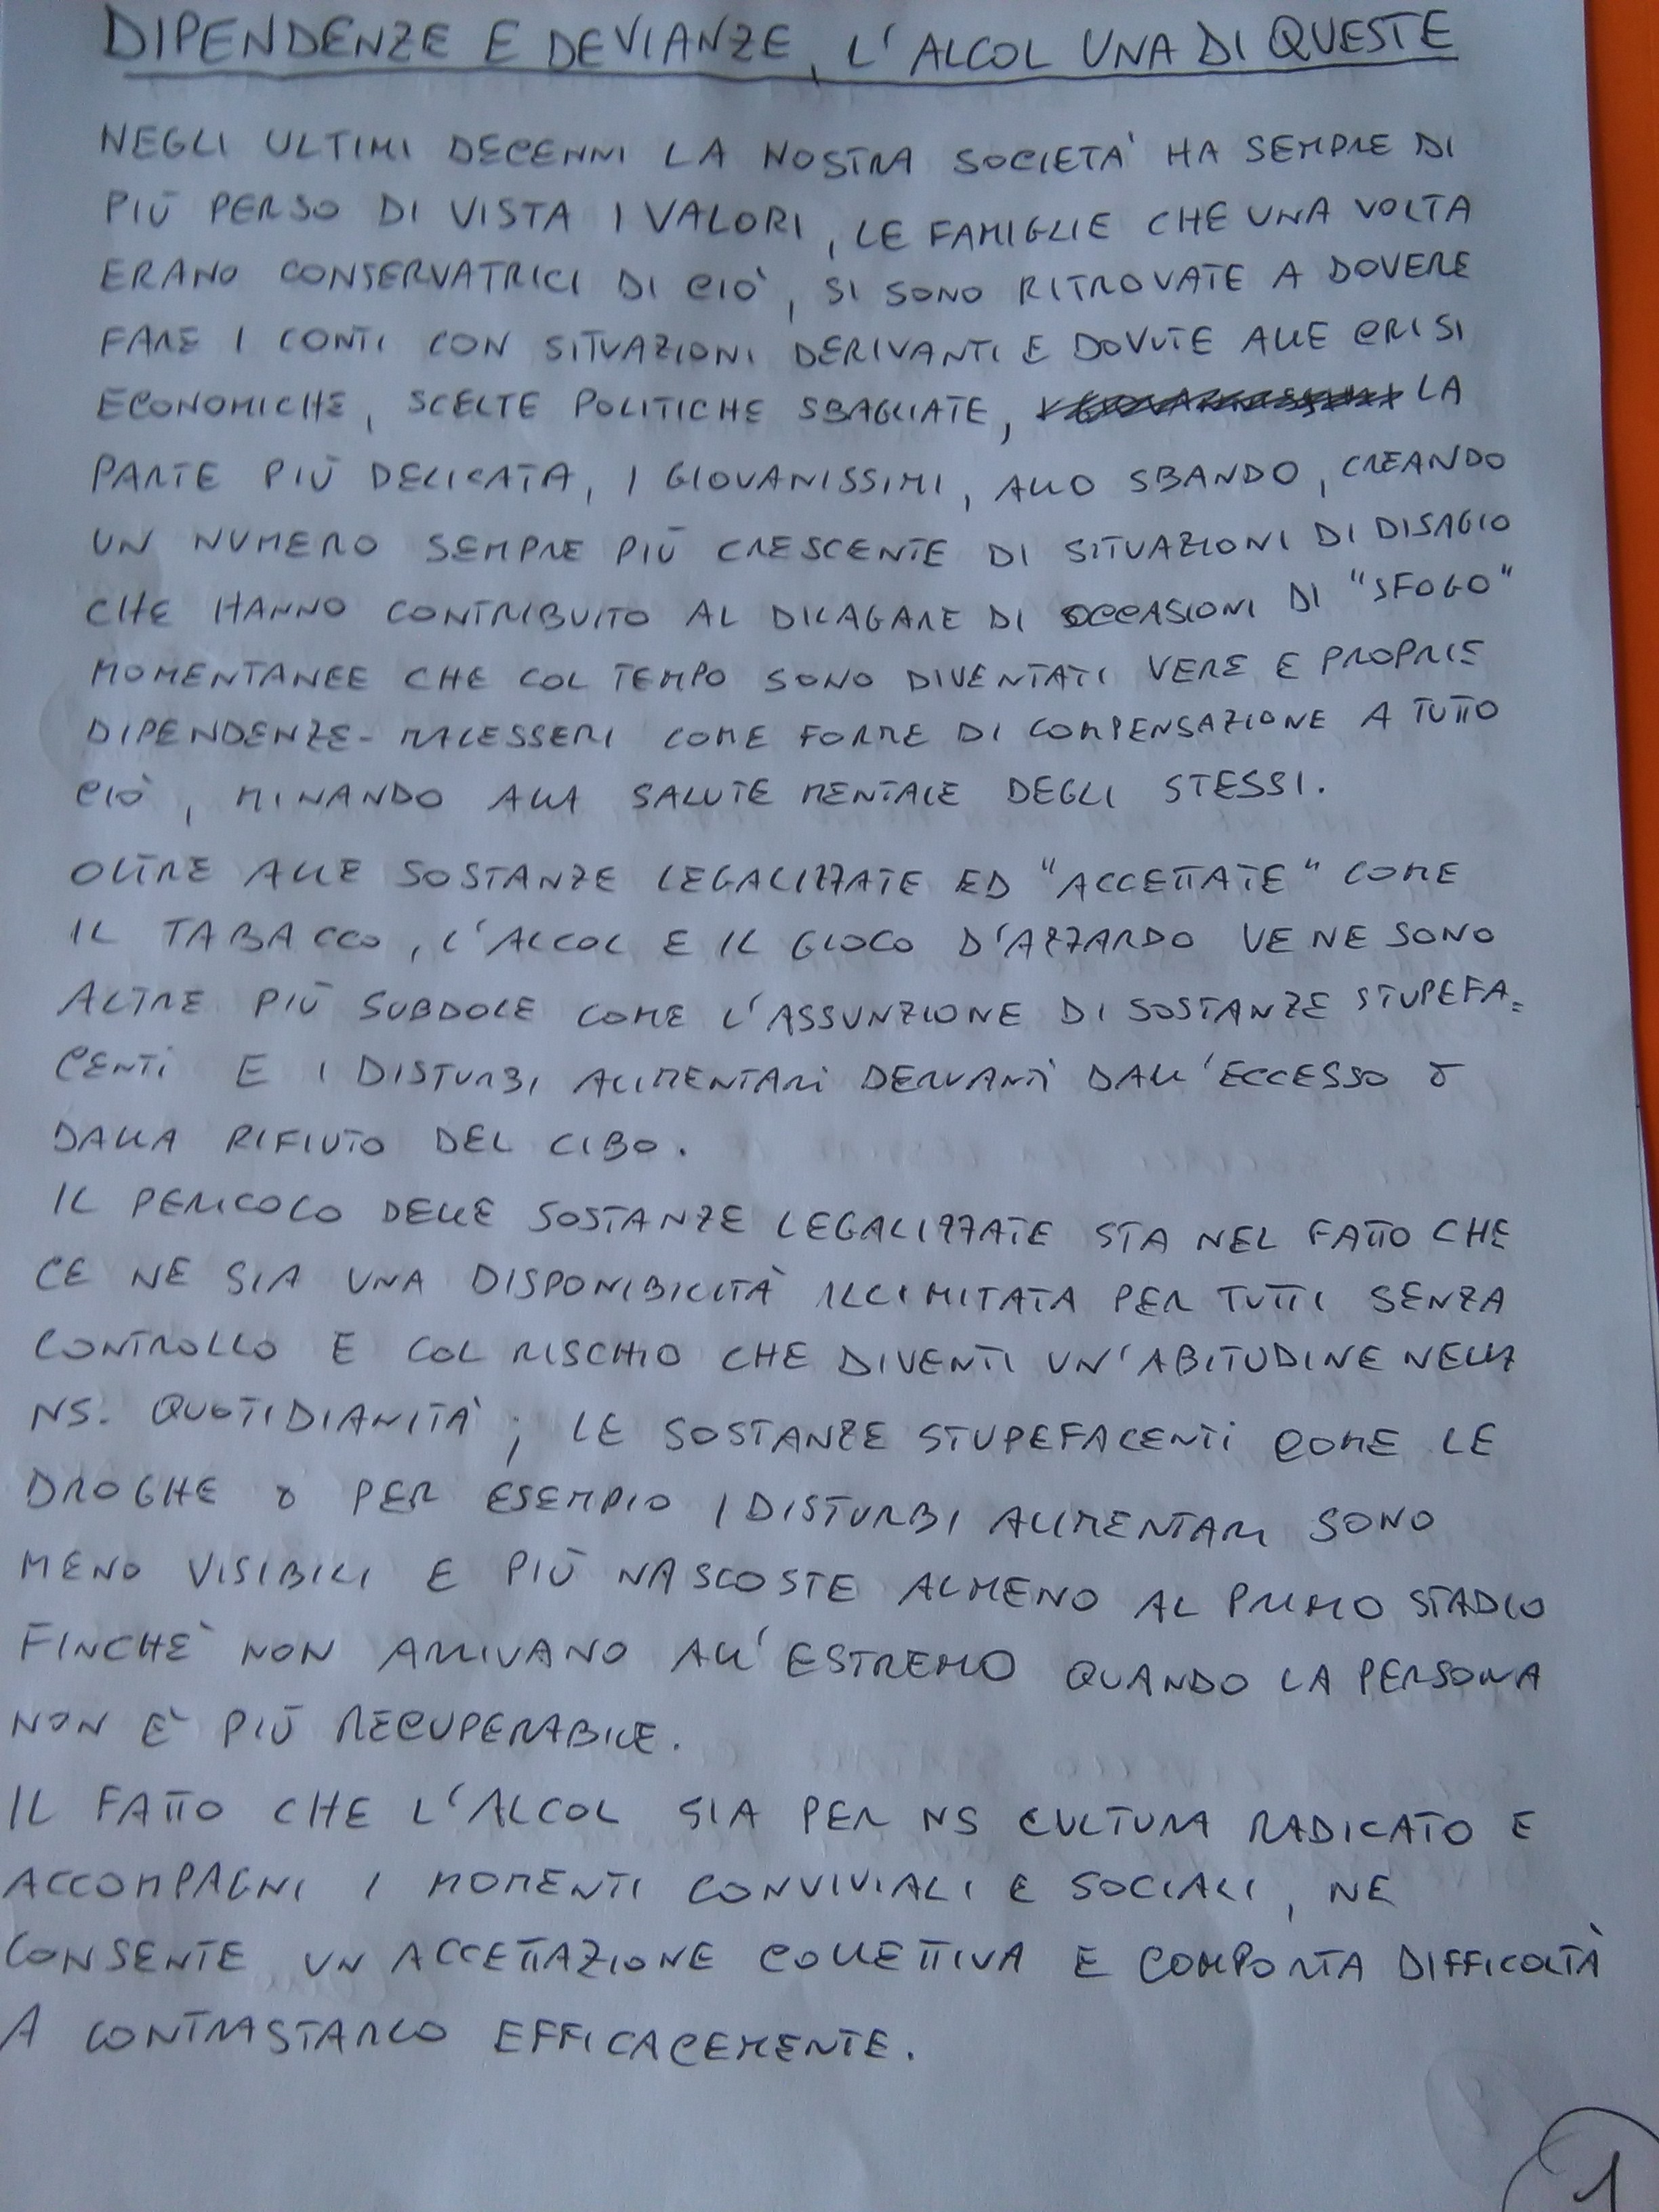 DIPENDENZE E DEVIANZE, L'ALCOL UNA DI QUESTE
NEGLI ULTIMI DECENNI LA NOSTRA SOCIETA' HA SEMPRE DI
PIÙ PERSO DI VISTA I VALORI, LE FAMIGLIE CHE UNA VOLTA
ERANO CONSERVATRICI DI CIO', SI SONO RITROVATE A DOVERE
FARE I CONTI CON SITUAZIONI DERIVANTI E DOVUTE ALLE CRISI
ECONOMICHE, SCELTE POLITICHE SBAGLIATE, LA
PARTE PIÙ DELICATA, I GIOVANISSIMI, ALLO SBANDO, CREANDO
UN NUMERO SEMPRE PIÙ CRESCENTE DI SITUAZIONI DI DISAGIO
CHE HANNO CONTRIBUITO AL DILAGARE DI OCCASIONI DI "SFOGO"
MOMENTANEE CHE COL TEMPO SONO DIVENTATI VERE E PROPRIE
DIPENDENZE- MALESSERI COME FORME DI COMPENSAZIONE A TUTTO
CIÒ, MINANDO ALLA SALUTE MENTALE DEGLI STESSI.
OLTRE ALLE SOSTANZE LEGALIZZATE ED "ACCETTATE" COME
IL TABACCO, L'ALCOL E IL GIOCO D'AZZARDO VE NE SONO
ALTRE PIÙ SUBDOLE COME L'ASSUNZIONE DI SOSTANZE STUPEFA=
CENTI E I DISTURBI ALIMENTARI DERIVANTI DALL'ECCESSO O
DALLA RIFIUTO DEL CIBO.
IL PERICOLO DELLE SOSTANZE LEGALIZZATE STA NEL FATTO CHE
CE NE SIA UNA DISPONIBILITÀ ILLIMITATA PER TUTTI SENZA
CONTROLLO E COL RISCHIO CHE DIVENTI UN'ABITUDINE NELLA
NS. QUOTIDIANITA'; LE SOSTANZE STUPEFACENTI COME LE
DROGHE O PER ESEMPIO I DISTURBI ALIMENTARI SONO
MENO VISIBILI E PIÙ NASCOSTE ALMENO AL PRIMO STADIO
FINCHE' NON ARRIVANO ALL'ESTREMO QUANDO LA PERSONA
NON E' PIÙ RECUPERABILE.
IL FATTO CHE L'ALCOL SIA PER NS CULTURA RADICATO E
ACCOMPAGNI I MOMENTI CONVIVIALI E SOCIALI, NE
CONSENTE UN ACCETTAZIONE COLLETTIVA E COMPORTA DIFFICOLTÀ
A CONTRASTARLO EFFICACEMENTE.
1